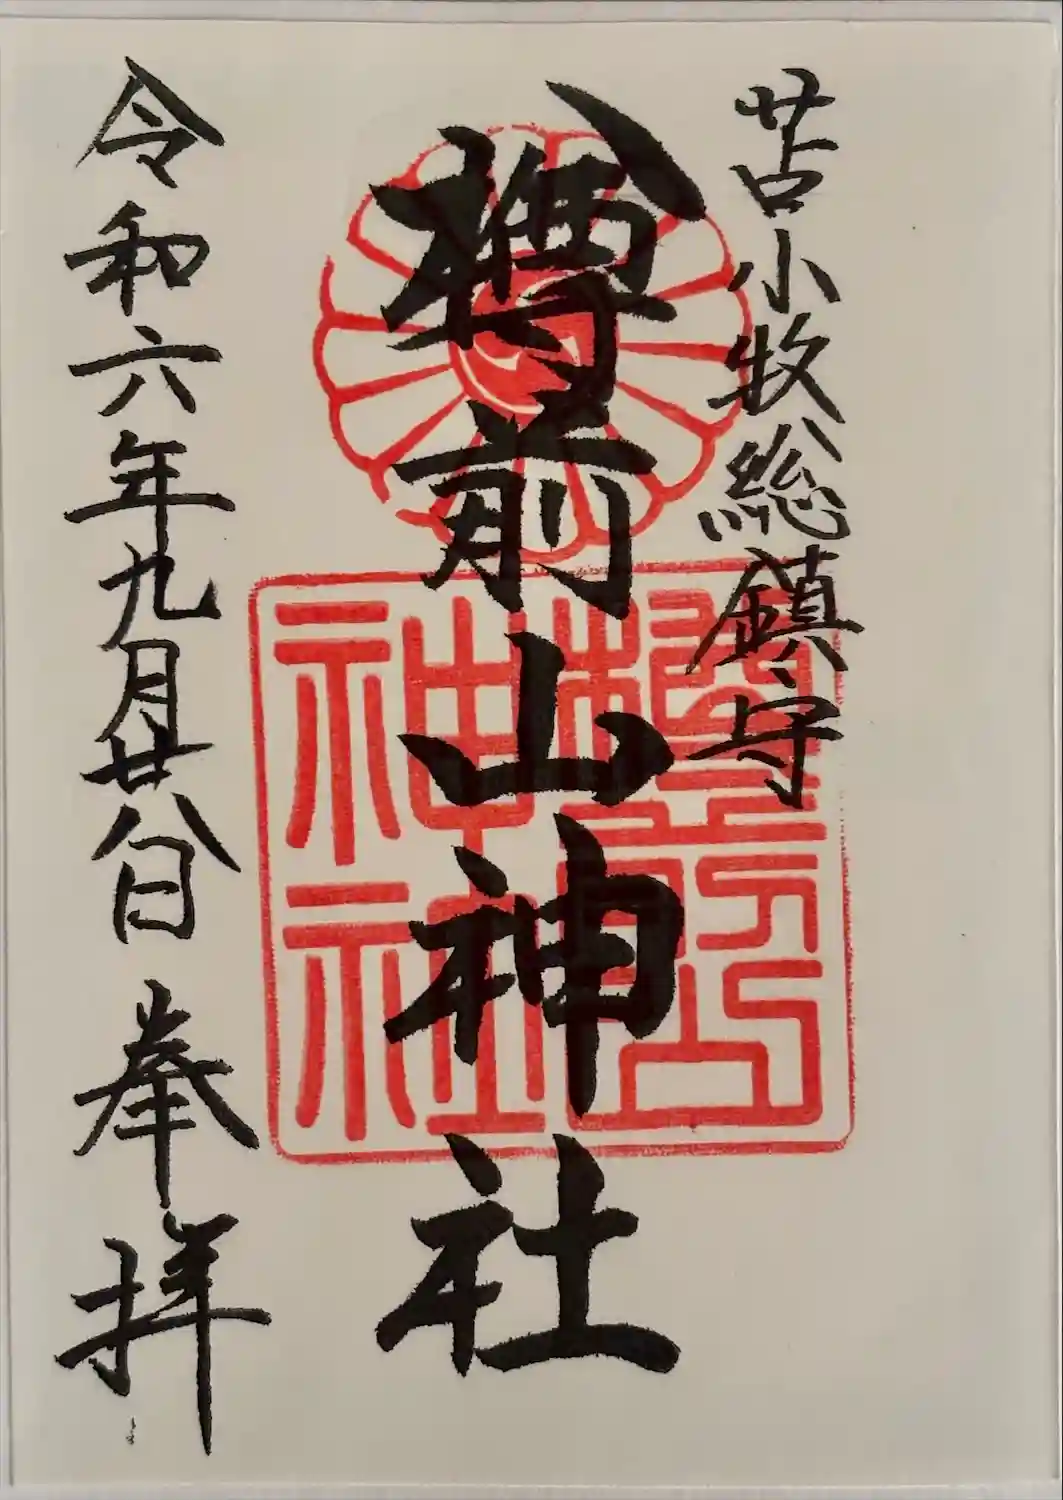 苫小牧総鎮守
樽前山神社
令和六年九月廿八日 奉拝
樽前山神社